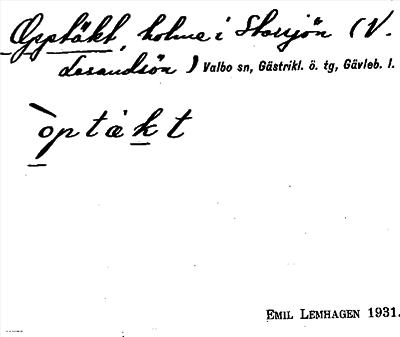 Øpptäkt, holme i Storsjön (V.
Lexandsön) Valbo sn, Gästrikl. ö. tg, Gävleb. l.
òptäkt
EMIL LEMHAGEN 1931.